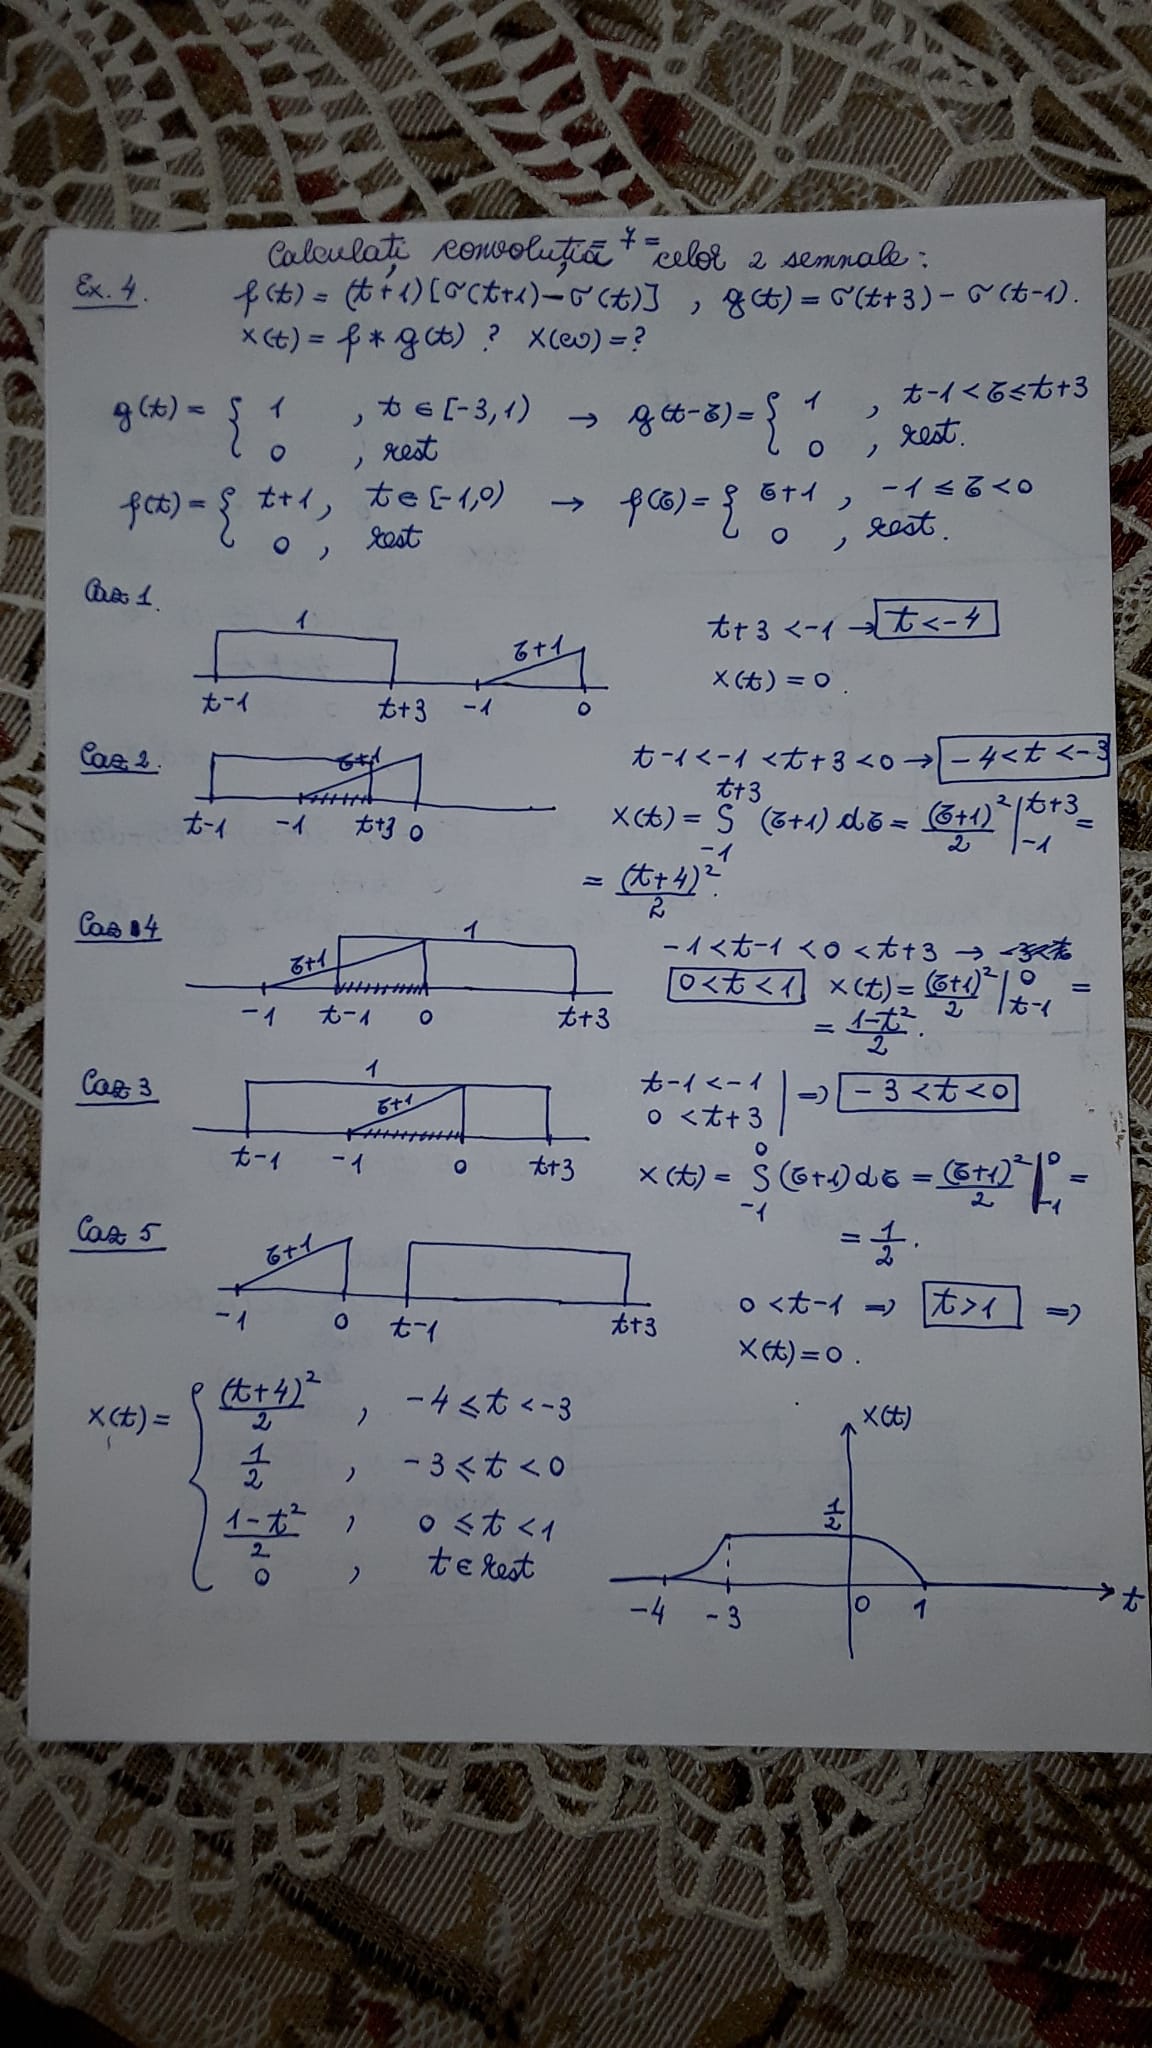 = 7 =
Calculați convoluția celor 2 semnale:
Ex. 4. f(t) = (t+1)[σ(t+1)-σ(t)] , g(t) = σ(t+3) - σ(t-1).
x(t) = f * g(t) ? X(ω) = ?
g(t) = { 1 , t ∈ [-3,1) → g(t-τ) = { 1 , t-1 < τ ≤ t+3
0 , rest 0 , rest.
f(t) = { t+1, t ∈ [-1,0) → f(τ) = { τ+1 , -1 ≤ τ < 0
0 , rest 0 , rest.
Caz 1.
1 τ+1 t+3 < -1 → t < -4
t-1 t+3 -1 0 x(t) = 0.
Caz 2. τ+1 t-1 < -1 < t+3 < 0 → -4 < t < -3
t-1 -1 t+3 0 x(t) = ∫_{-1}^{t+3} (τ+1) dτ = (τ+1)²/2 |_{-1}^{t+3} =
= (t+4)²/2.
Caz 4 τ+1 1 -1 < t-1 < 0 < t+3 →
0 < t < 1 x(t) = (τ+1)²/2 |_{t-1}^{0} =
-1 t-1 0 t+3 = (1-t²)/2.
Caz 3 1 τ+1 t-1 < -1 | => -3 < t < 0
0 < t+3
t-1 -1 0 t+3 x(t) = ∫_{-1}^{0} (τ+1) dτ = (τ+1)²/2 |_{-1}^{0} =
= 1/2.
Caz 5 τ+1
-1 0 t-1 t+3 0 < t-1 => t > 1 =>
x(t) = 0.
x(t) = { (t+4)²/2 , -4 ≤ t < -3
1/2 , -3 ≤ t < 0
(1-t²)/2 , 0 ≤ t < 1
0 , t ∈ rest
x(t)
1/2
-4 -3 0 1 t